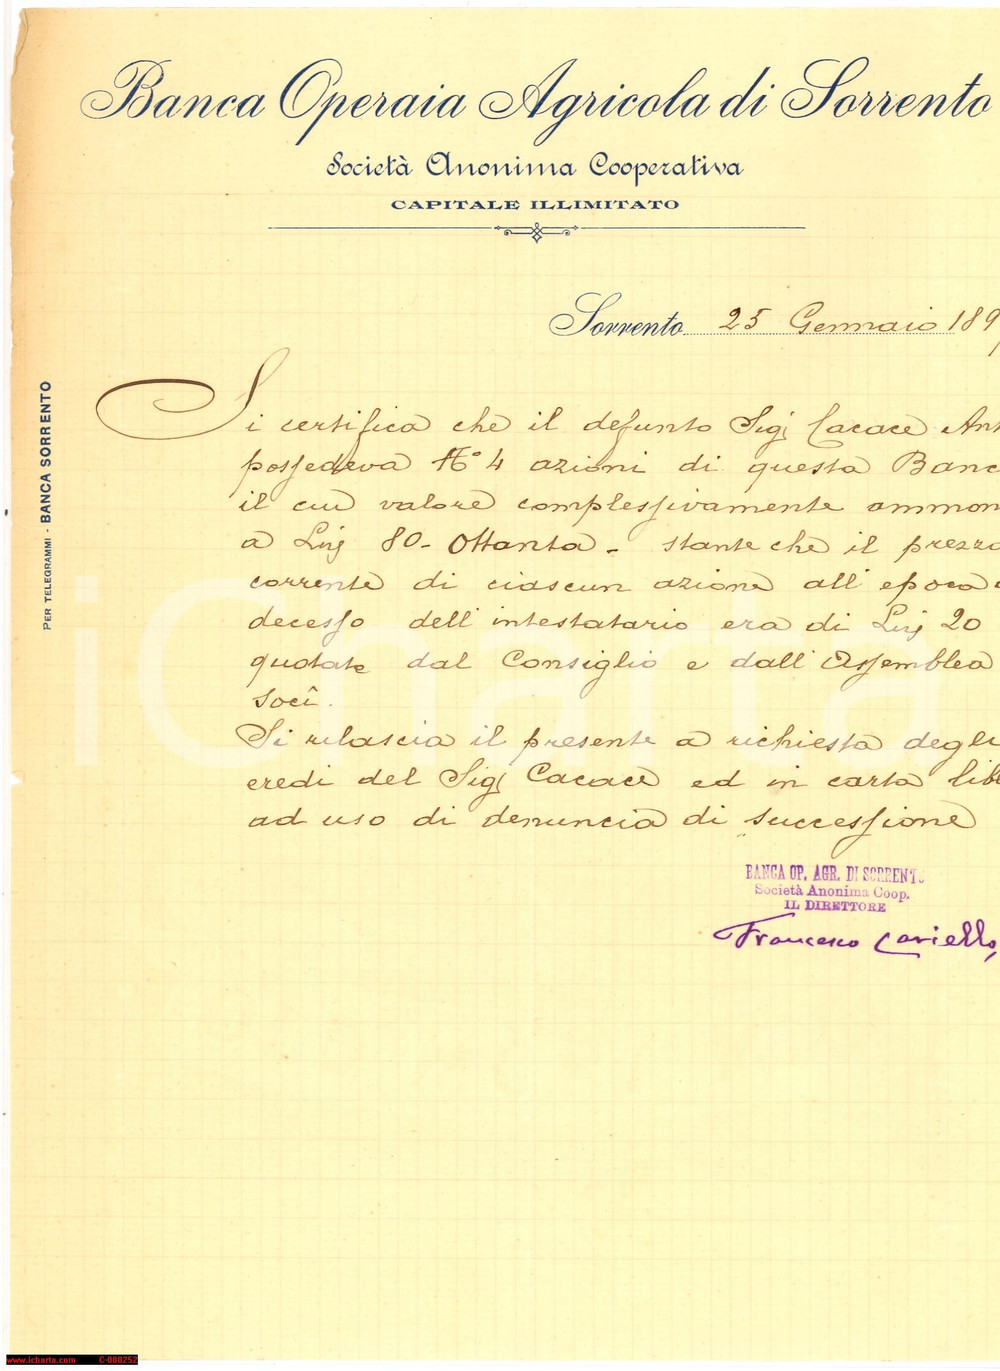 Banca Operaia Agricola di Sorrento
Società Anonima Cooperativa
CAPITALE ILLIMITATO
Sorrento 25 Gennaio 189
PER TELEGRAMMI - BANCA SORRENTO
Si certifica che il defunto Sigr Cacace Ant
possedeva No 4 azioni di questa Banc
il cui valore complessivamente ammon
a Lire 80 - Ottanta - stante che il prezzo
corrente di ciascun azione all'epoca
decesso dell'intestatario era di Lire 20
quotate dal Consiglio e dall'Assemblea
Soci.
Si rilascia il presente a richiesta degli
eredi del Sigr Cacace ed in carta libe
ad uso di denuncia di successione
BANCA OP. AGR. DI SORRENTO
Società Anonima Coop.
IL DIRETTORE
Francesco Cariello
iCharta
www.icharta.com C-080252